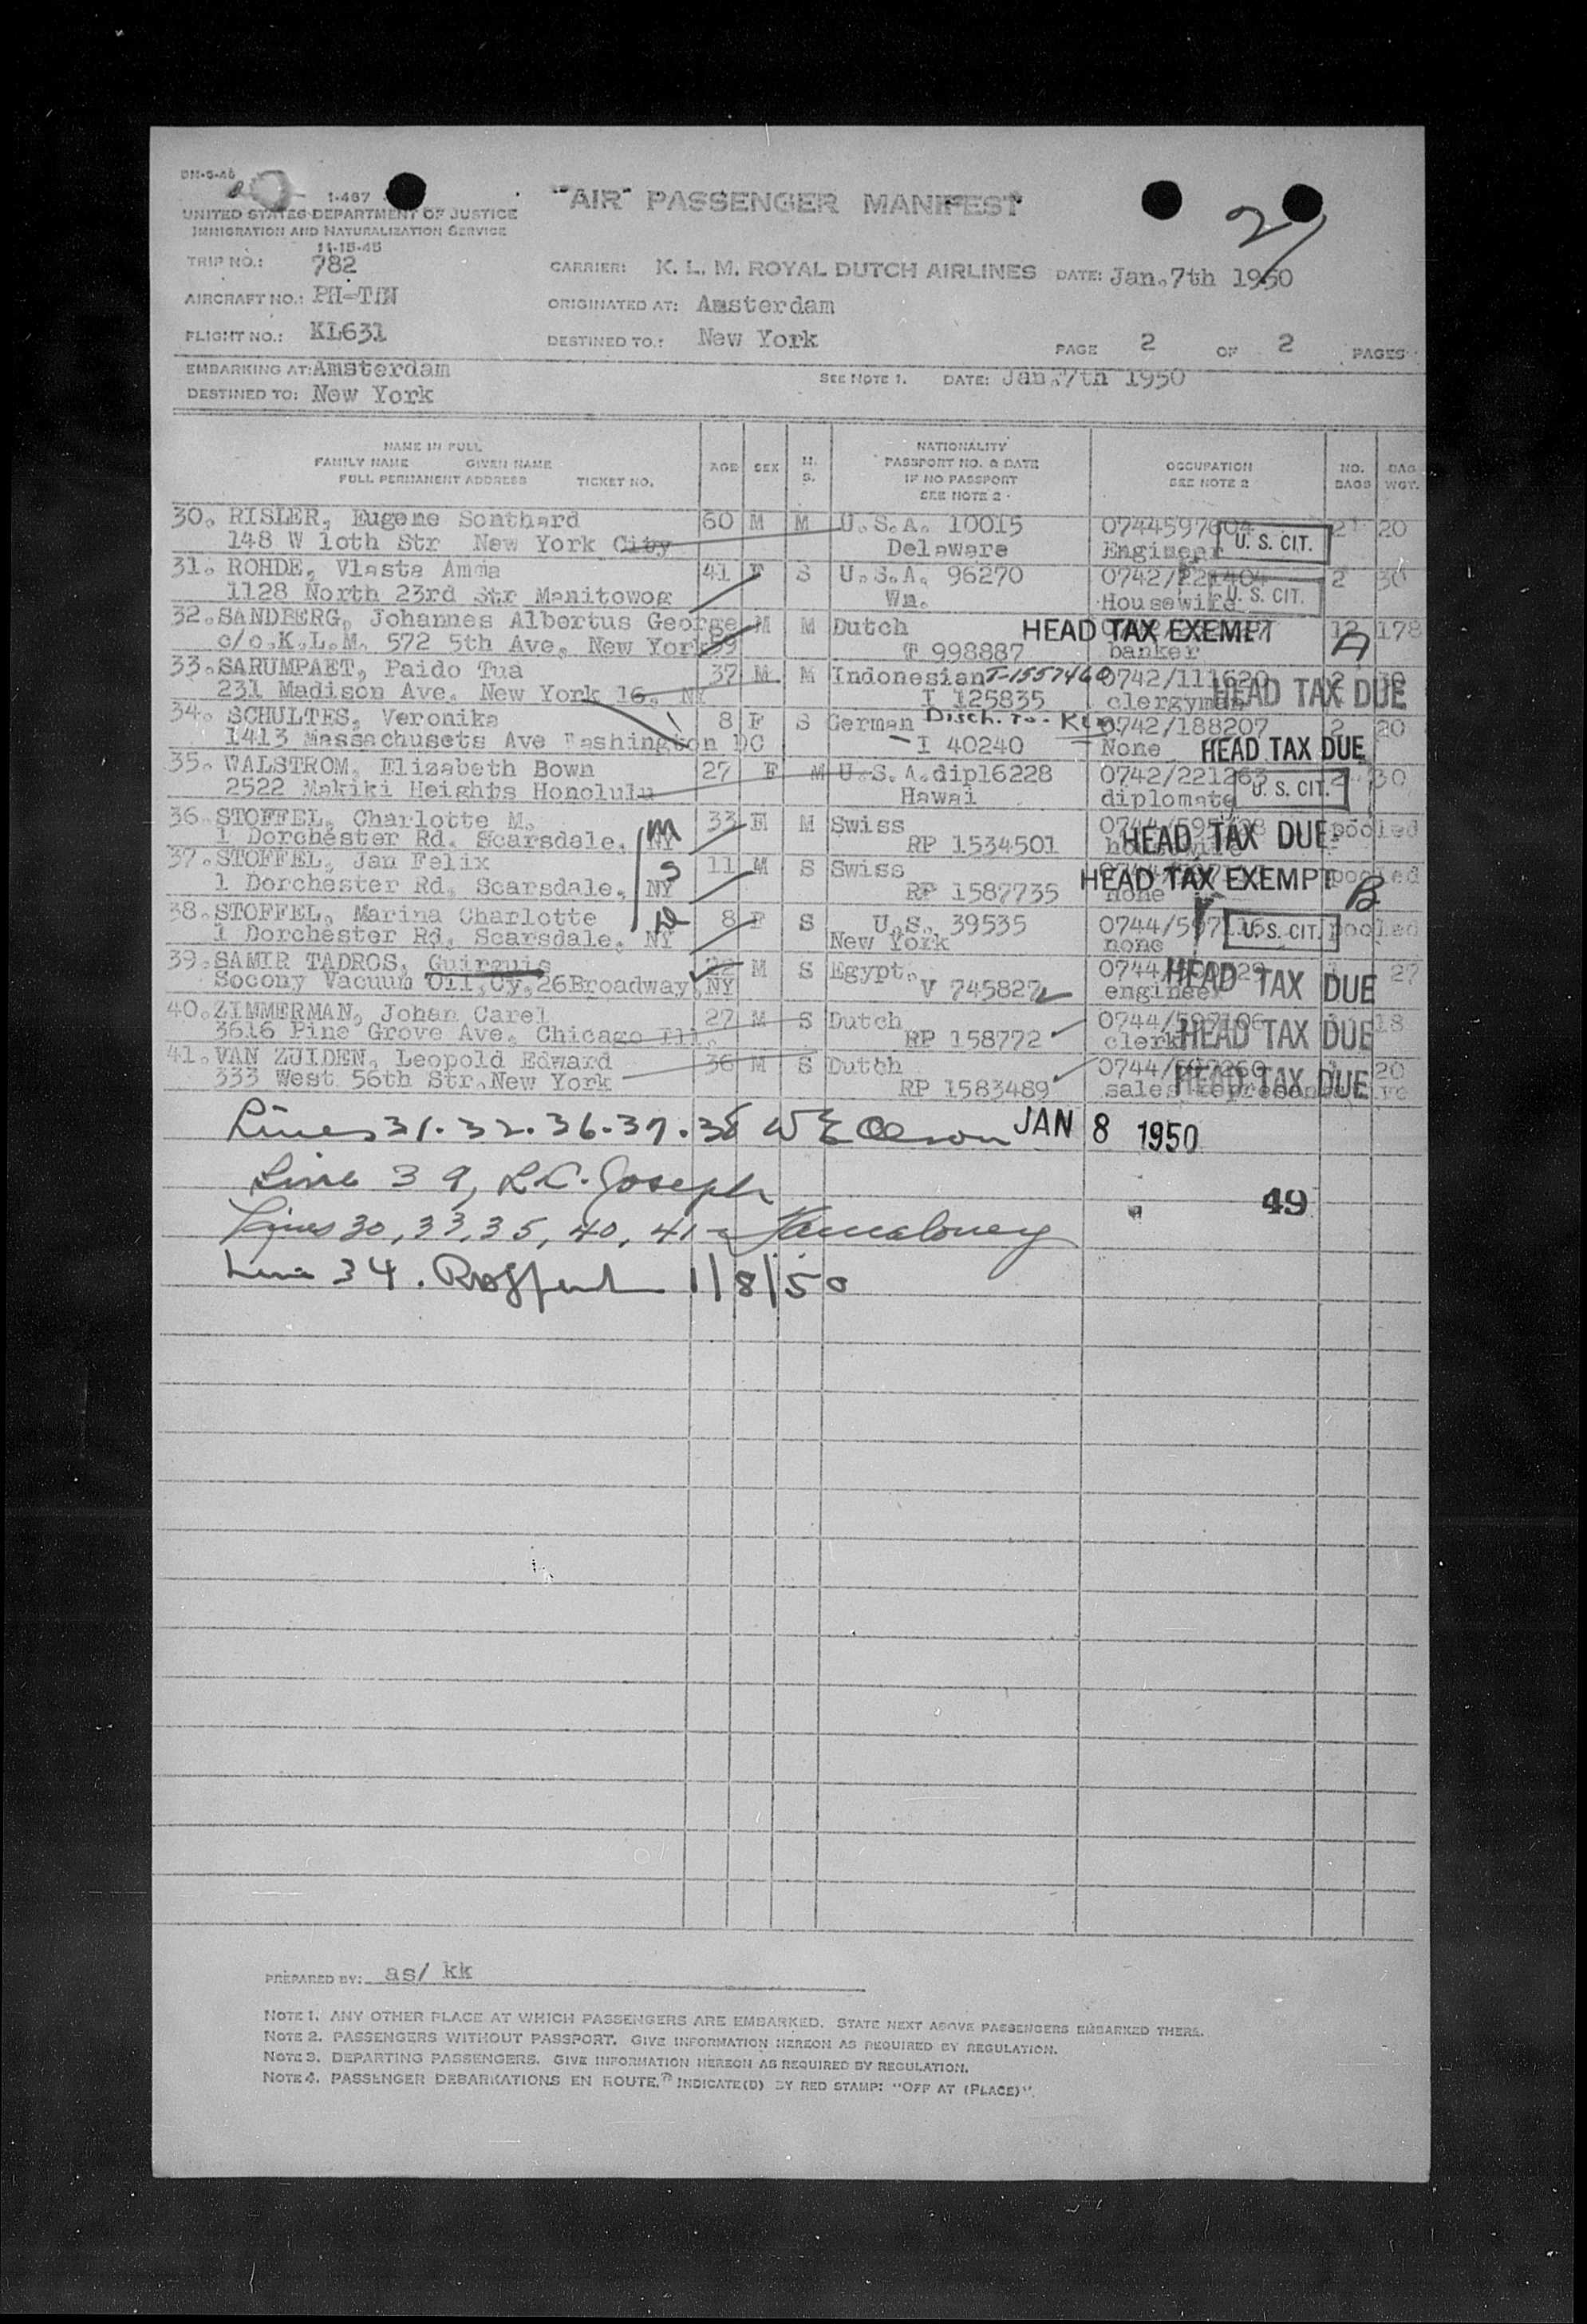 1-467
"AIR" PASSENGER MANIFEST
2
UNITED STATES DEPARTMENT OF JUSTICE
IMMIGRATION AND NATURALIZATION SERVICE
11-15-45
TRIP NO.: 782
CARRIER: K. L. M. ROYAL DUTCH AIRLINES DATE: Jan.7th 1950
AIRCRAFT NO.: PH-TDN
ORIGINATED AT: Amsterdam
FLIGHT NO.: KL631
DESTINED TO.: New York
PAGE 2 OF 2 PAGES
EMBARKING AT: Amsterdam
SEE NOTE 1. DATE: Jan.7th 1950
DESTINED TO: New York
NAME IN FULL
FAMILY NAME GIVEN NAME
FULL PERMANENT ADDRESS TICKET NO.
AGE SEX M. S.
NATIONALITY
PASSPORT NO. & DATE
IF NO PASSPORT
SEE NOTE 2
OCCUPATION
SEE NOTE 2
NO. BAGS
BAG WGT.
30. RISLER, Eugene Sonthard 60 M M U.S.A. 10015 0744597604 2 20
148 W 10th Str New York City Delaware Engineer U. S. CIT.
31. ROHDE, Vlasta Amoia 41 F S U.S.A. 96270 0742/221404 2 30
1128 North 23rd Str Manitowog Wn. Housewife U. S. CIT.
32. SANDBERG, Johannes Albertus George M M Dutch HEAD TAX EXEMPT 12 178
c/o.K.L.M. 572 5th Ave. New York 59 T 998887 banker A
33. SARUMPAET, Paido Tua 37 M M Indonesian T-1557460 0742/111620 2 30
231 Madison Ave. New York 16. NY I 125835 clergyman HEAD TAX DUE
34. SCHULTES, Veronika 8 F S German Disch. To - KLM 0742/188207 2 20
1413 Massachusets Ave Washington DC I 40240 None HEAD TAX DUE
35. WALSTROM, Elizabeth Bown 27 F M U.S.A.dip16228 0742/221263 2 30
2522 Makiki Heights Honolulu Hawai diplomate U. S. CIT.
36. STOFFEL, Charlotte M. m 33 F M Swiss pooled
1 Dorchester Rd. Scarsdale. NY RP 1534501 HEAD TAX DUE
37. STOFFEL, Jan Felix s 11 M S Swiss pooled
1 Dorchester Rd. Scarsdale. NY RP 1587735 none HEAD TAX EXEMPT B
38. STOFFEL, Marina Charlotte D 8 F S U.S. 39535 0744/597116 U. S. CIT. pooled
1 Dorchester Rd. Scarsdale. NY New York none
39. SAMIR TADROS, Guirguis 22 M S Egypt. HEAD TAX DUE 27
Socony Vacuum Oil.Cy.26Broadway.NY V 745827 engineer
40. ZIMMERMAN, Johan Carel 27 M S Dutch 0744/597106 18
3616 Pine Grove Ave. Chicago Ill. RP 158772 clerk HEAD TAX DUE
41. VAN ZUIDEN, Leopold Edward 36 M S Dutch 0744/597260 20
333 West 56th Str.New York RP 1583489 sales HEAD TAX DUE
Lines 31.32.36.37.38 W E Olson JAN 8 1950
Line 39, L.C. Joseph
49
Lines 30, 33, 35, 40, 41 -
Line 34. 1/8/50
PREPARED BY: as/ kk
NOTE 1. ANY OTHER PLACE AT WHICH PASSENGERS ARE EMBARKED. STATE NEXT ABOVE PASSENGERS EMBARKED THERE.
NOTE 2. PASSENGERS WITHOUT PASSPORT. GIVE INFORMATION HEREON AS REQUIRED BY REGULATION.
NOTE 3. DEPARTING PASSENGERS. GIVE INFORMATION HEREON AS REQUIRED BY REGULATION.
NOTE 4. PASSENGER DEBARKATIONS EN ROUTE. INDICATE(D) BY RED STAMP: "OFF AT (PLACE)".